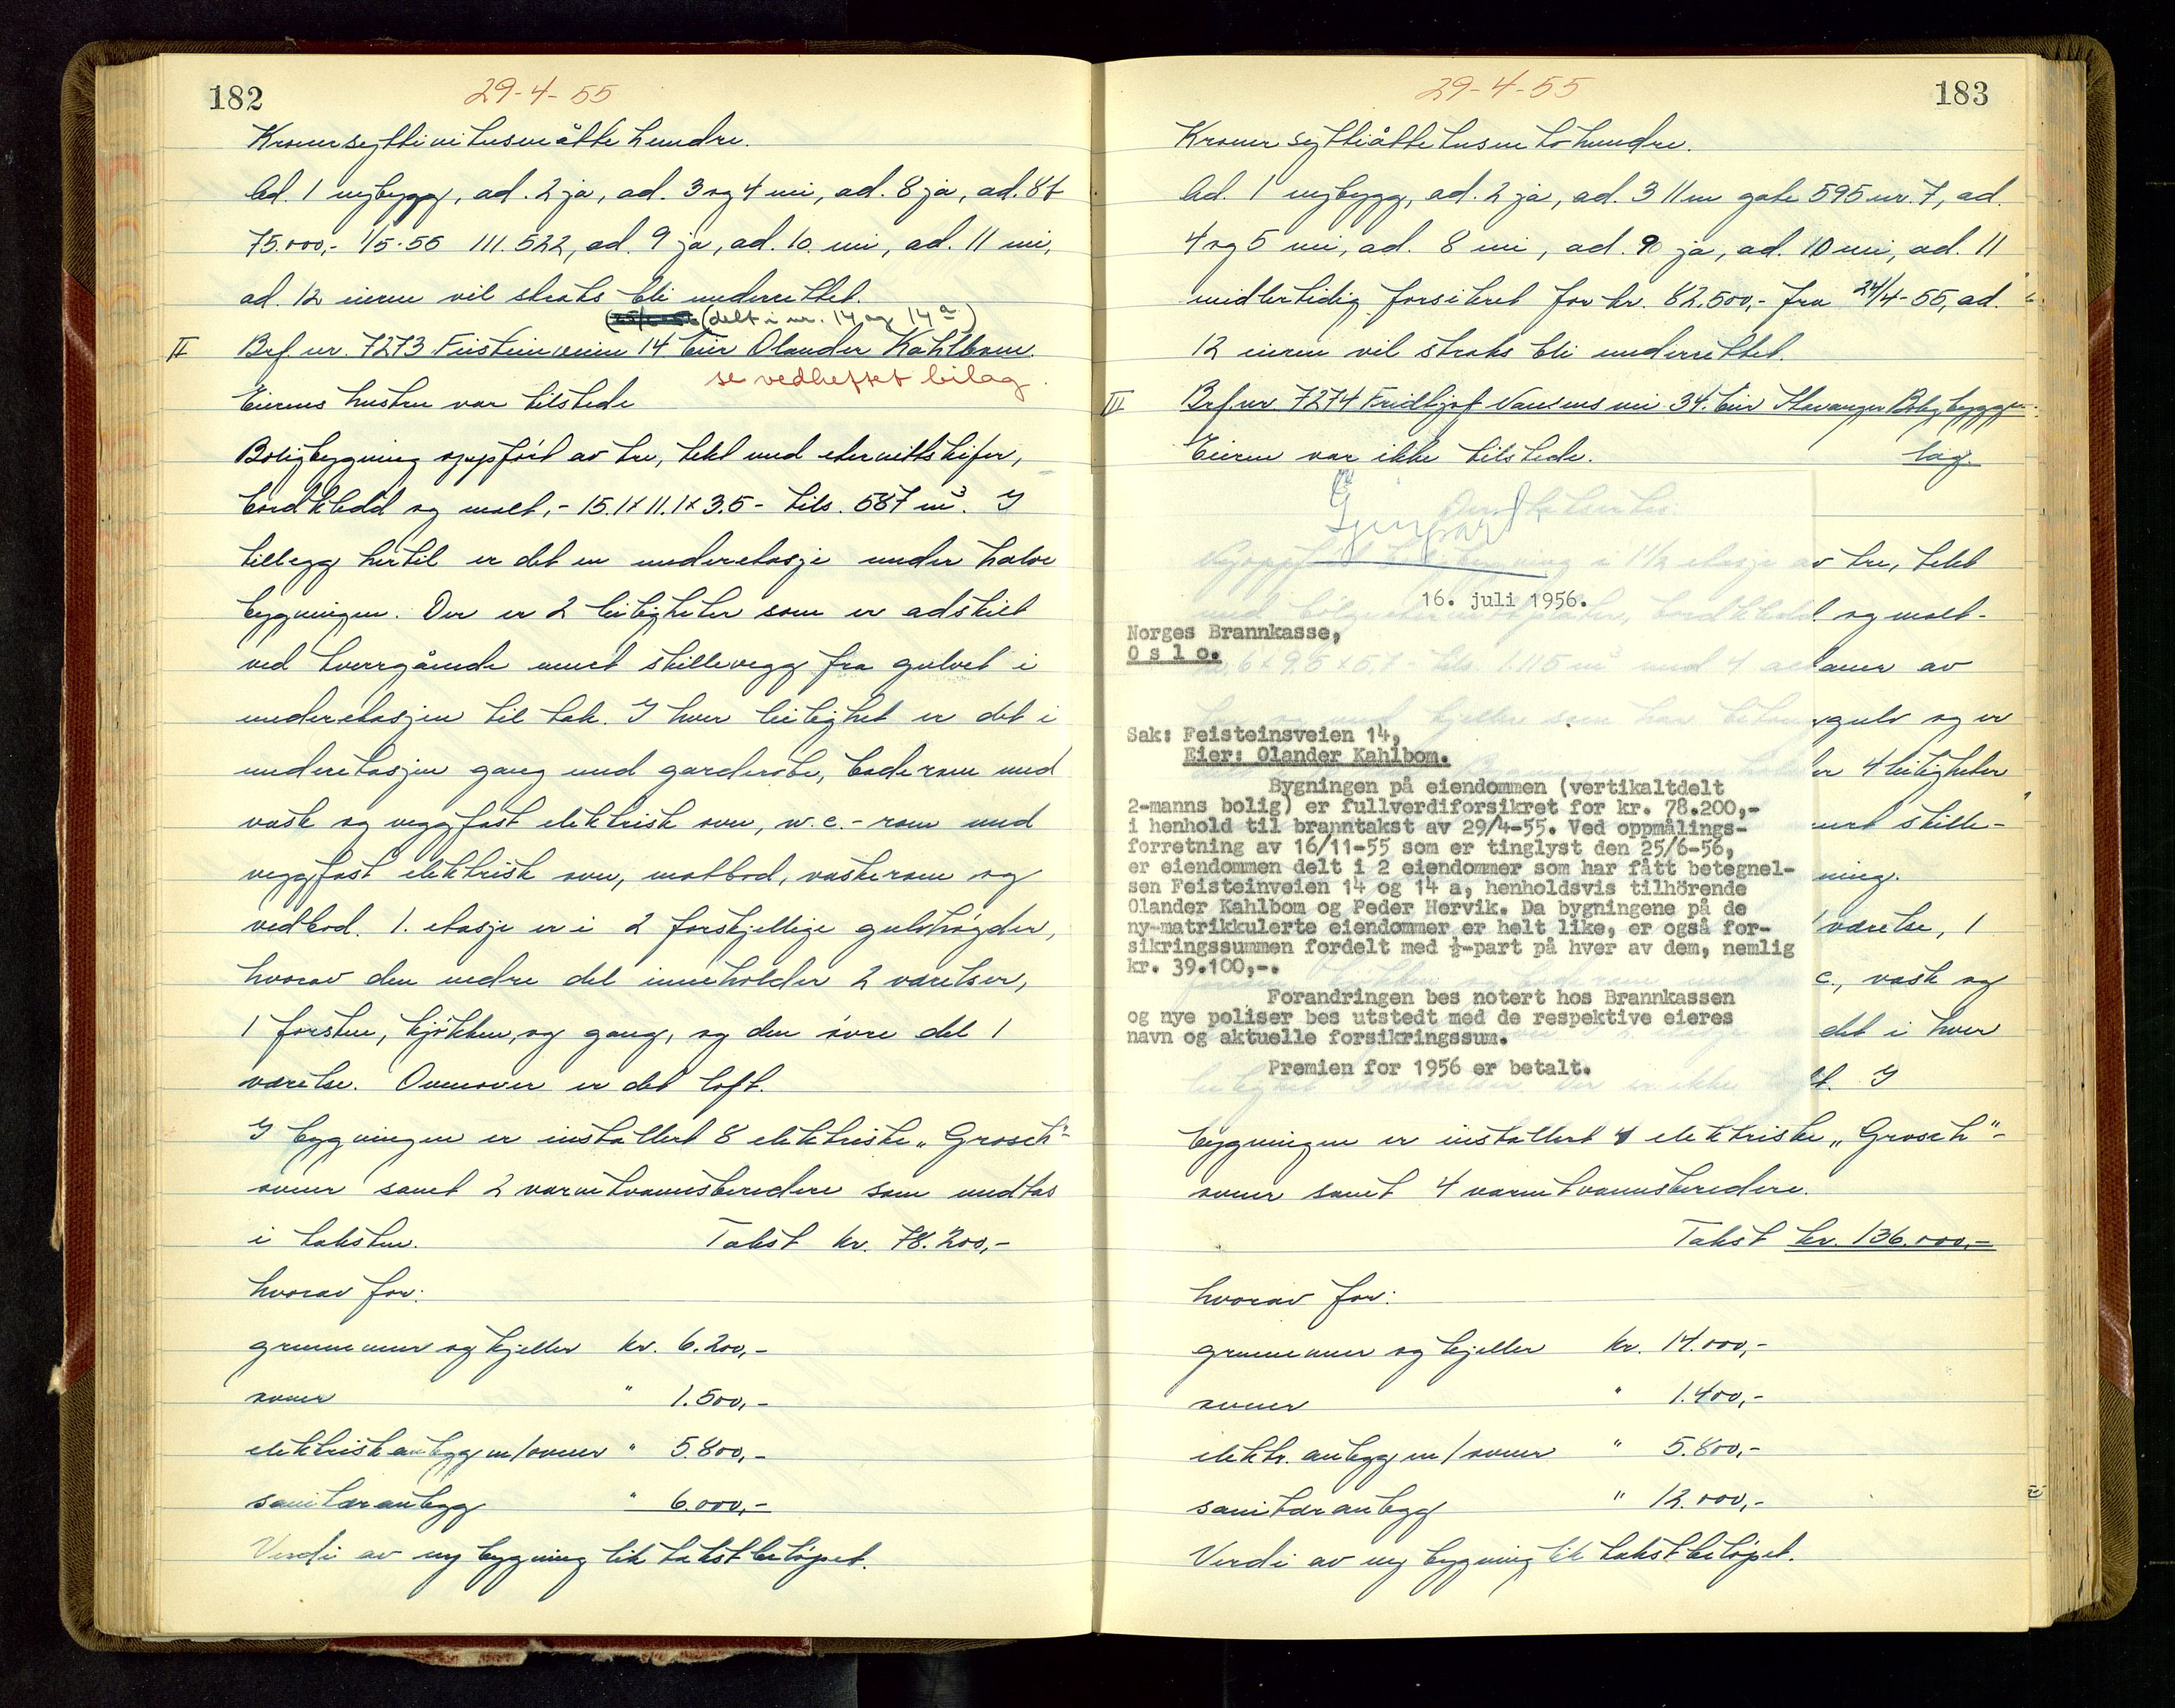 182
29-4-55
Kroner syttini tusen åtte hundre.
Ad. 1 nybygg, ad. 2 ja, ad. 3 og 4 nei, ad. 8 ja, ad. 8 f
75.000,- 1/5-55 111.522, ad. 9 ja, ad. 10. nei, ad. 11 nei,
ad. 12 eieren vil straks bli underrettet.
(delt i nr. 14 og 14 a)
II Brf nr. 7273 Feisteinveien 14 Eier Olander Kahlbom.
se vedheftet bilag.
Eierens hustru var tilstede
Boligbygning oppført av tre, tekt med eternittskifer,
bordkledd og malt, - 15.1 x 11.1 x 3.5 - tils. 587 m³. I
tillegg hertil er det en underetasje under halve
bygningen. Der er 2 leiligheter som er adskilt
ved tverrgående muret skillevegg fra gulvet i
underetasjen til tak. I hver leilighet er det i
underetasjen gang med garderobe, baderom med
vask og veggfast elektrisk ovn, w.c.-rom med
veggfast elektrisk ovn, matbod, vaskerom og
vedbod. 1. etasje er i 2 forskjellige gulvhøgder,
hvorav den nedre del inneholder 2 værelser,
1 forstue, kjøkken, og gang, og den øvre del 1
værelse. Ovenover er det loft.
I bygningen er installert 8 elektriske "Grosch"-
ovner samt 2 varmtvannsberedere som medtas
i taksten. Takst kr. 78.200,-
hvorav for:
grunnmur og kjeller kr. 6.200,-
ovner " 1.500,-
elektrisk anlegg m/ovner " 5.800,-
sanitæranlegg " 6.000,-
Verdi av ny bygning lik takstbeløpet.
183
29-4-55
Kroner syttiåtte tusen to hundre.
Ad. 1 nybygg, ad. 2 ja, ad. 3 11 m gate 595 nr. 7, ad.
4 og 5 nei, ad. 8 nei, ad. 9 ja, ad. 10 nei, ad. 11
midlertidig forsikret for kr. 82.500,- fra 24/4-55, ad.
12 eieren vil straks bli underrettet.
III Brf nr 7274 Fridtjof Nansens vei 34. Eier Stavanger Boligbygge-
lag.
Eieren var ikke tilstede.
Gjenpart
16. juli 1956.
Norges Brannkasse,
O s l o.
Sak: Feisteinsveien 14,
Eier: Olander Kahlbom.
Bygningen på eiendommen (vertikaltdelt
2-manns bolig) er fullverdiforsikret for kr. 78.200,-
i henhold til branntakst av 29/4-55. Ved oppmålings-
forretning av 16/11-55 som er tinglyst den 25/6-56,
er eiendommen delt i 2 eiendommer som har fått betegnel-
sen Feisteinveien 14 og 14 a, henholdsvis tilhörende
Olander Kahlbom og Peder Hervik. Da bygningene på de
ny-matrikkulerte eiendommer er helt like, er også for-
sikringssummen fordelt med ½-part på hver av dem, nemlig
kr. 39.100,-.
Forandringen bes notert hos Brannkassen
og nye poliser bes utstedt med de respektive eieres
navn og aktuelle forsikringssum.
Premien for 1956 er betalt.
v tre, tekt
og malt.
aner av
gulv og er
er 4 leiligheter
uret skille-
ning.
værelse, 1
c., vask og
det i hver
t. I
bygningen er installert 8 elektriske "Grosch"-
ovner samt 4 varmtvannsberedere.
Takst kr. 136.000,-
hvorav for:
grunnmur og kjeller kr. 14.000,-
ovner " 1.400,-
elektr. anlegg m/ovner " 5.800,-
sanitæranlegg " 12.000,-
Verdi av ny bygning lik takstbeløpet.